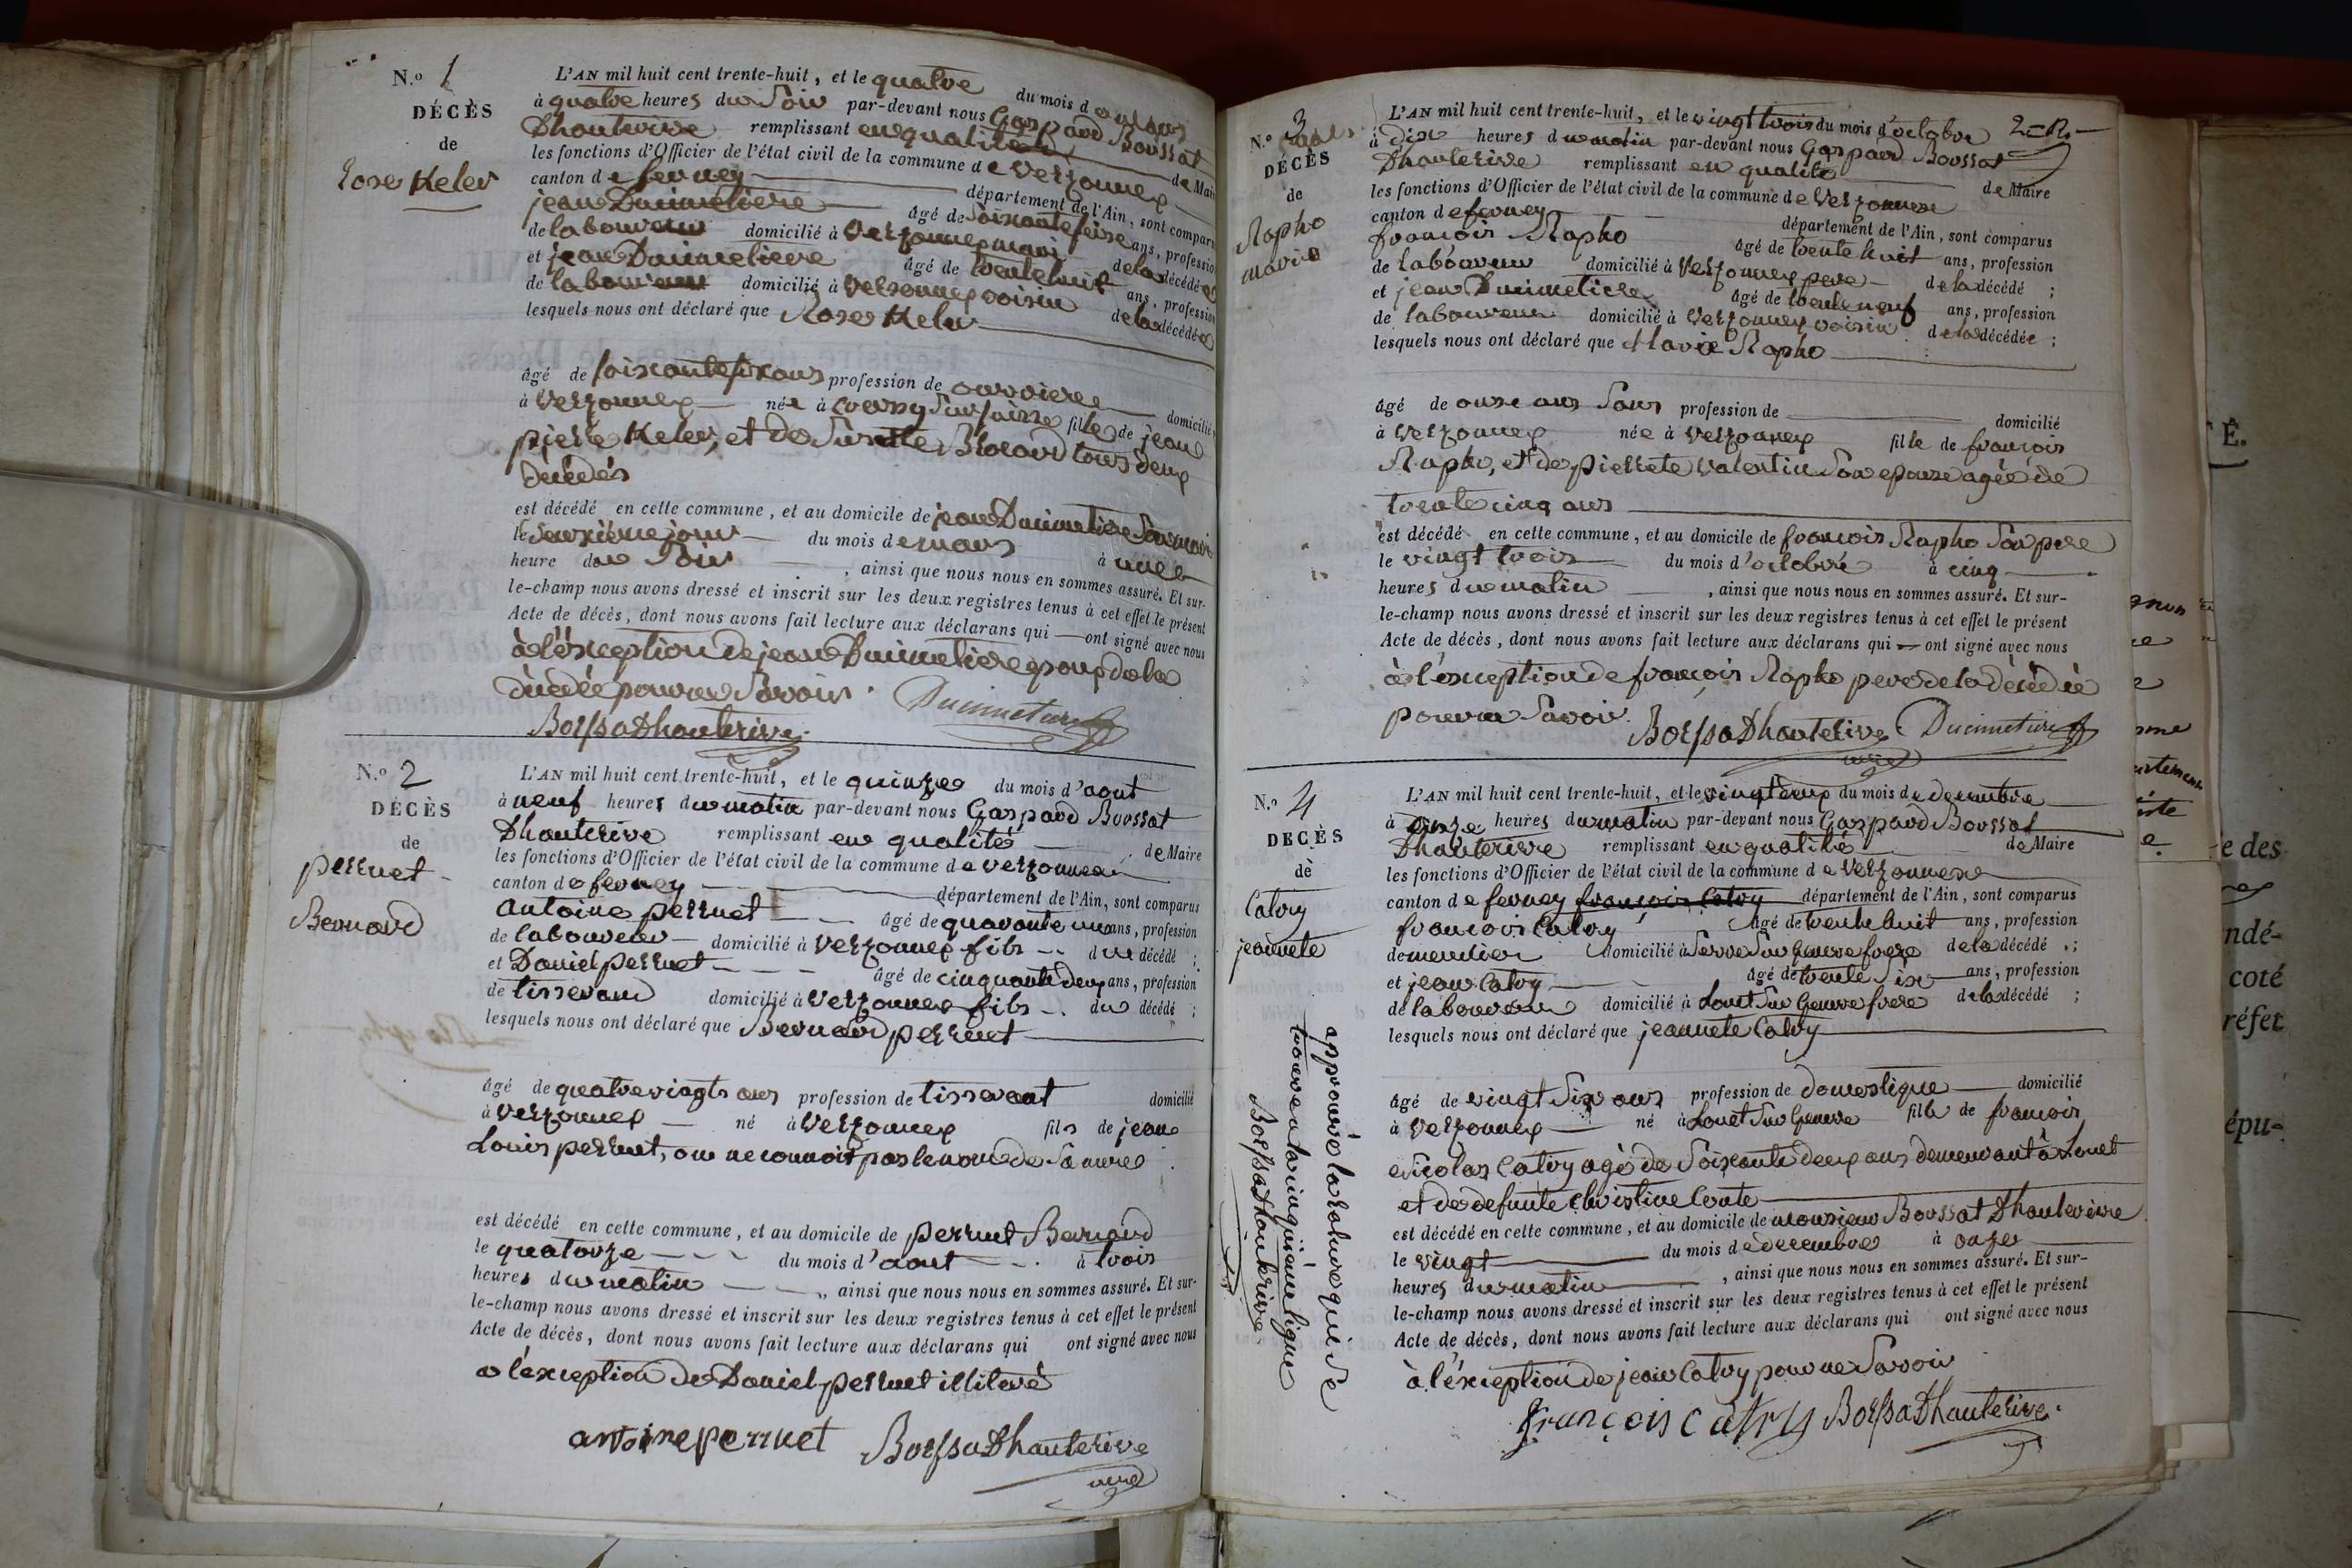 N.o 1
DÉCÈS
de
Rose Keler
L'AN mil huit cent trente-huit, et le quatre du mois de mars
à quatre heures du Soir par-devant nous Gaspard Boussat
Dhauterive remplissant en qualité de Maire
les fonctions d'Officier de l'état civil de la commune de Versonnex
canton de ferney département de l'Ain, sont comparus
jean Duimetiere âgé de Soixante seise ans, profession
de laboureur domicilié à Versonnex mari de la décédée
et jean Duimetiere âgé de trente huit ans, profession
de laboureur domicilié à Versonnex voisin de la décédée
lesquels nous ont déclaré que Rose Keler
âgé de soixante six ans profession de ouvriere domicilié
à Versonnex née à fille de jean
pierre Keler, et de Susette tous deux
décédés
est décédé en cette commune, et au domicile de jean Duimetiere Son mari
le deuxième jour du mois de mars à une
heure du Soir, ainsi que nous nous en sommes assuré. Et sur-
le-champ nous avons dressé et inscrit sur les deux registres tenus à cet effet le présent
Acte de décès, dont nous avons fait lecture aux déclarans qui ont signé avec nous
à l'exception de jean Duimetiere epoux de la
décédée pour ne Savoir. Duimetiere
Boussat Dhauterive
N.o 2
DÉCÈS
de
perruet
Bernard
L'AN mil huit cent trente-huit, et le quinze du mois d'aout
à neuf heures du matin par-devant nous Gaspard Boussat
Dhauterive remplissant en qualité de Maire
les fonctions d'Officier de l'état civil de la commune de Versonnex
canton de ferney département de l'Ain, sont comparus
antoine perruet âgé de quarante un ans, profession
de laboureur domicilié à Versonnex fils du décédé ;
et Daniel perruet âgé de cinquante deux ans, profession
de tisserand domicilié à Versonnex fils du décédé ;
lesquels nous ont déclaré que Bernard perruet
âgé de quatre vingts ans profession de tisserant domicilié
à Versonnex né à Versonnex fils de jean
Louis perruet, on ne connoit pas le nom de Sa mere
est décédé en cette commune, et au domicile de perruet Bernard
le quatorze du mois d'aout à trois
heures du matin, ainsi que nous nous en sommes assuré. Et sur-
le-champ nous avons dressé et inscrit sur les deux registres tenus à cet effet le présent
Acte de décès, dont nous avons fait lecture aux déclarans qui ont signé avec nous
a l'exception de Daniel perruet illiteré
antoine perruet Boussat Dhauterive
maire
N.o 3
DÉCÈS
de
Rapho
marie
L'AN mil huit cent trente-huit, et le vingt trois du mois d'octobre
à dix heures du matin par-devant nous Gaspard Boussat
Dhauterive remplissant en qualité de Maire
les fonctions d'Officier de l'état civil de la commune de Versonnex
canton de ferney département de l'Ain, sont comparus
francois Rapho âgé de trente huit ans, profession
de laboureur domicilié à Versonnex pere de la décédé ;
et jean Duimetiere âgé de trente neuf ans, profession
de laboureur domicilié à Versonnex voisin de la décédée ;
lesquels nous ont déclaré que Marie Rapho
âgé de onse ans Sans profession de domicilié
à Versonnex née à Versonnex fille de francois
Rapho, et de pierrete valentin Son epouse agée de
trente cinq ans
est décédé en cette commune, et au domicile de francois Rapho Son pere
le vingt trois du mois d'octobre à cinq
heures du matin, ainsi que nous nous en sommes assuré. Et sur-
le-champ nous avons dressé et inscrit sur les deux registres tenus à cet effet le présent
Acte de décès, dont nous avons fait lecture aux déclarans qui ont signé avec nous
à l'exception de francois Rapho pere de la décédée
pour ne Savoir. Boussat Dhauterive Duimetiere
maire
N.o 4
DÉCÈS
de
Catry
jeannete
L'AN mil huit cent trente-huit, et le vingt deux du mois de decembre
à onze heures du matin par-devant nous Gaspard Boussat
Dhauterive remplissant en qualité de Maire
les fonctions d'Officier de l'état civil de la commune de Versonnex
canton de ferney francois Catry département de l'Ain, sont comparus
francois Catry âgé de trente huit ans, profession
de meunier domicilié à frere de la décédé ;
et jean Catry âgé de trente Six ans, profession
de laboureur domicilié à frere de la décédé ;
lesquels nous ont déclaré que jeannete Catry
âgé de vingt Six ans profession de domestique domicilié
à Versonnex né à fille de francois
nicolas Catry agé de Soixante deux ans demeurant à
et de defunte Christine Conte
est décédé en cette commune, et au domicile de monsieur Boussat Dhauterive
le vingt du mois de decembre à onze
heures du matin, ainsi que nous nous en sommes assuré. Et sur-
le-champ nous avons dressé et inscrit sur les deux registres tenus à cet effet le présent
Acte de décès, dont nous avons fait lecture aux déclarans qui ont signé avec nous
à l'éxception de jean Catry pour ne Savoir
françois catry Boussat Dhauterive
approuvé la rature qui Se
trouve a la cinquieme ligne
Boussat Dhauterive